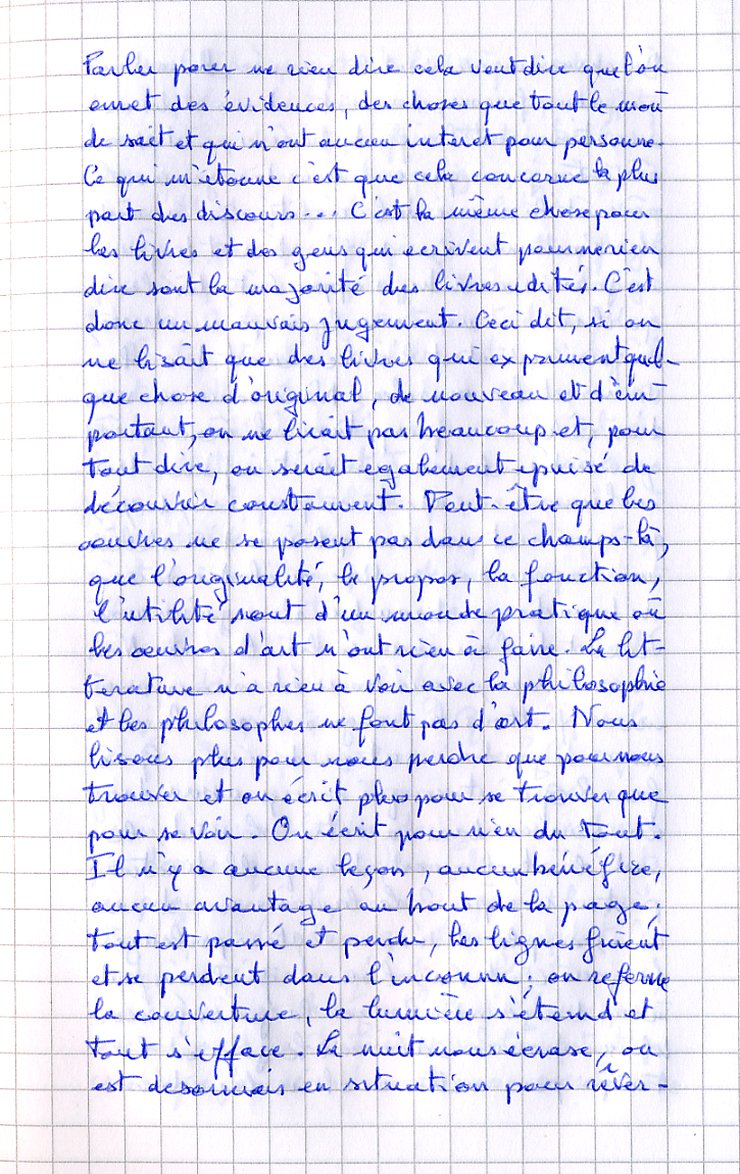 Parler pour ne rien dire cela veut dire que l'on
émet des évidences, des choses que tout le mon
de sait et qui n'ont aucun interet pour personne.
Ce qui m'étonne c'est que cela concerne la plus
part des discours... C'est la même chose pour
les livres et des gens qui ecrivent pour ne rien
dire sont la majorité des livres edités. C'est
donc un mauvais jugement. Ceci dit, si on
ne lisait que des livres qui expriment quel-
que chose d'original, de nouveau et d'im
portant, on ne lirait pas beaucoup et, pour
tout dire, on serait egalement epuisé de
découvrir constamment. Peut-être que les
oeuvres ne se posent pas dans ce champs-là,
que l'originalité, le propos, la fonction,
l'utilité sont d'un monde pratique où
les oeuvres d'art n'ont rien à faire. La lit-
terature n'a rien à voir avec la philosophie
et les philosophes ne font pas d'art. Nous
lisons plus pour nous perdre que pour nous
trouver et on écrit plus pour se trouver que
pour se voir. On écrit pour rien du tout.
Il n'y a aucune leçon, aucun bénéfice,
aucun avantage au bout de la page;
tout est passé et perdu, les lignes fuient
et se perdent dans l'inconnu; on referme
la couverture, la lumière s'éteind et
tout s'efface. La nuit nous écrase, on
est desormais en situation pour rêver-